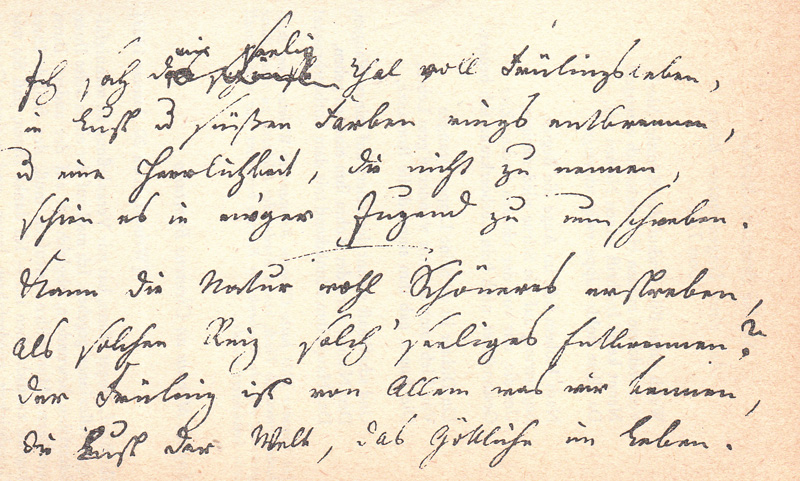 ein seelig
Ich sah das Thal voll Frülingsleben,
in Lust u süßen Farben rings entbrennen,
u eine Herrlichkeit, die nicht zu nennen,
schien es in ew'ger Jugend zu umschweben.
Kann die Natur wohl Schöneres erstreben,
als solchen Reiz solch' seeliges Entbrennen?
der Früling ist von Allem was wir kennen,
die Lust der Welt, das Göttliche im Leben.